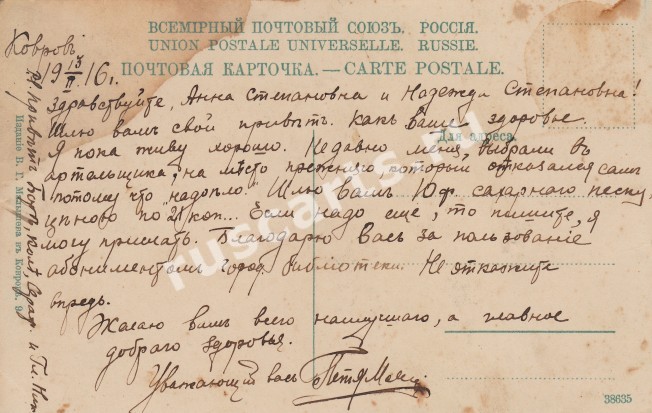 ВСЕМІРНЫЙ ПОЧТОВЫЙ СОЮЗЪ. РОССІЯ.
UNION POSTALE UNIVERSELLE. RUSSIE.
ПОЧТОВАЯ КАРТОЧКА. — CARTE POSTALE.
Ковровъ
19 13/II 16 г.
Здравствуйте, Анна Степановна и Надежда Степановна!
Шлю вамъ свой привѣтъ. Какъ Ваше здоровье.
Для адреса.
Я пока живу хорошо. Недавно меня выбрали въ
артельщика, на мѣсто прежняго, который отказался самъ
потому что „надоѣло." Шлю Вамъ 10ф. сахарнаго песку,
цѣною по 21 коп... Если надо еще, то пишите, я
могу прислать. Благодарю Васъ за пользованіе
абониментомъ Город. библіотеки. Не откажите
впредь.
Желаю вамъ всего наилучшаго, а главное
добраго здоровья.
Уважающій васъ Петя
привѣтъ
и Гл.
Изданіе В. Г. въ Ковровѣ.
38635
ruscards.ru